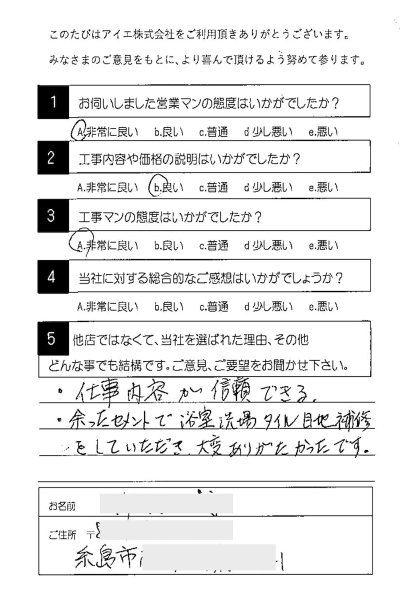 このたびはアイエ株式会社をご利用頂きありがとうございます。
みなさまのご意見をもとに、より喜んで頂けるよう努めて参ります。
1 お伺いしました営業マンの態度はいかがでしたか？
A.非常に良い b.良い c.普通 d少し悪い e.悪い
2 工事内容や価格の説明はいかがでしたか？
A.非常に良い b.良い c.普通 d少し悪い e.悪い
3 工事マンの態度はいかがでしたか？
A.非常に良い b.良い c.普通 d少し悪い e.悪い
4 当社に対する総合的なご感想はいかがでしょうか？
A.非常に良い b.良い c.普通 d少し悪い e.悪い
5 他店ではなくて、当社を選ばれた理由、その他
どんな事でも結構です。ご意見、ご要望をお聞かせ下さい。
・仕事内容が信頼できる。
・余ったセメントで浴室洗場タイル目地補修
をしていただき大変ありがたかったです。
お名前
ご住所 〒
糸島市